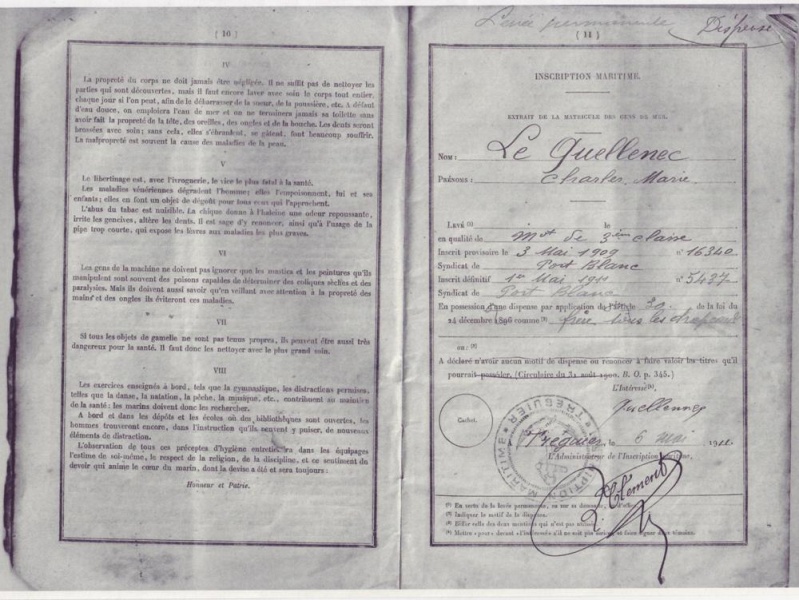 ( 10 )
IV
La propreté du corps ne doit jamais être négligée. Il ne suffit pas de nettoyer les
parties qui sont découvertes, mais il faut encore laver avec soin le corps tout entier,
chaque jour si l'on peut, afin de le débarrasser de la sueur, de la poussière, etc. A défaut
d'eau douce, on emploiera l'eau de mer et on ne terminera jamais sa toilette sans
avoir fait la propreté de la tête, des oreilles, des ongles et de la bouche. Les dents seront
brossées avec soin; sans cela, elles s'ébranlent, se gâtent, font beaucoup souffrir.
La malpropreté est souvent la cause des maladies de la peau.
V
Le libertinage est, avec l'ivrognerie, le vice le plus fatal à la santé.
Les maladies vénériennes dégradent l'homme; elles l'empoisonnent, lui et ses
enfants; elles en font un objet de dégoût pour tous ceux qui l'approchent.
L'abus du tabac est nuisible. La chique donne à l'haleine une odeur repoussante,
irrite les gencives, altère les dents. Il est sage d'y renoncer, ainsi qu'à l'usage de la
pipe trop courte, qui expose les lèvres aux maladies les plus graves.
VI
Les gens de la machine ne doivent pas ignorer que les mastics et les peintures qu'ils
manipulent sont souvent des poisons capables de déterminer des coliques sèches et des
paralysies. Mais ils doivent aussi savoir qu'en veillant avec attention à la propreté des
mains et des ongles ils éviteront ces maladies.
VII
Si tous les objets de gamelle ne sont pas tenus propres, ils peuvent être aussi très
dangereux pour la santé. Il faut donc les nettoyer avec le plus grand soin.
VIII
Les exercices enseignés à bord, tels que la gymnastique, les distractions permises,
telles que la danse, la natation, la pêche, la musique, etc., contribuent au maintien
de la santé: les marins doivent donc les rechercher.
A bord et dans les dépôts et les écoles où des bibliothèques sont ouvertes, les
hommes trouveront encore, dans l'instruction qu'ils peuvent y puiser, de nouveaux
éléments de distraction.
L'observation de tous ces préceptes d'hygiène entretiendra dans les équipages
l'estime de soi-même, le respect de la religion, de la discipline, et ce sentiment du
devoir qui anime le cœur du marin, dont la devise a été et sera toujours :
Honneur et Patrie.
Levée permanente
Dispensé
( 11 )
INSCRIPTION MARITIME.
EXTRAIT DE LA MATRICULE DES GENS DE MER.
Nom : Le Quellenec
Prénoms : Charles Marie
Levé (1) le
en qualité de Mot de 3ème classe
Inscrit provisoire le 3 Mai 1909 n° 16340
Syndicat de Port Blanc
Inscrit définitif 1er Mai 1911 n° 5437
Syndicat de Port Blanc
En possession d'une dispense par application de l'article 30 de la loi du
24 décembre 1896 comme (2) frère sous les drapeaux
ou : (3)
A déclaré n'avoir aucun motif de dispense ou renoncer à faire valoir les titres qu'il
pourrait posséder. (Circulaire du 31 août 1900. B. O. p. 345.)
L'Intéressé (4),
Quellennec
Cachet.
INSCRIPTION MARITIME TREGUIER
Tréguier, le 6 mai 1911.
L'Administrateur de l'Inscription maritime,
Clément
(2) Indiquer le motif de la dispense.
(3) Biffer celle des deux mentions qui n'est pas utilisée.